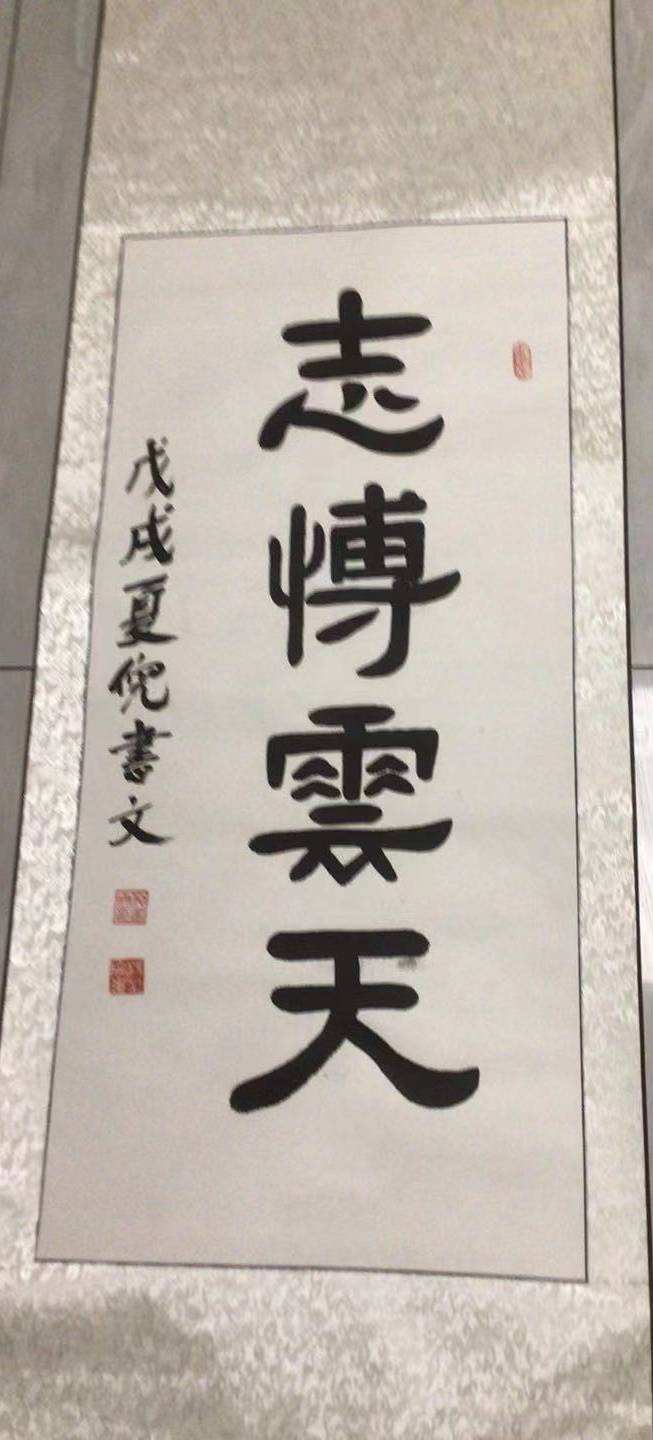 志愽雲天
戊戌夏倪書文